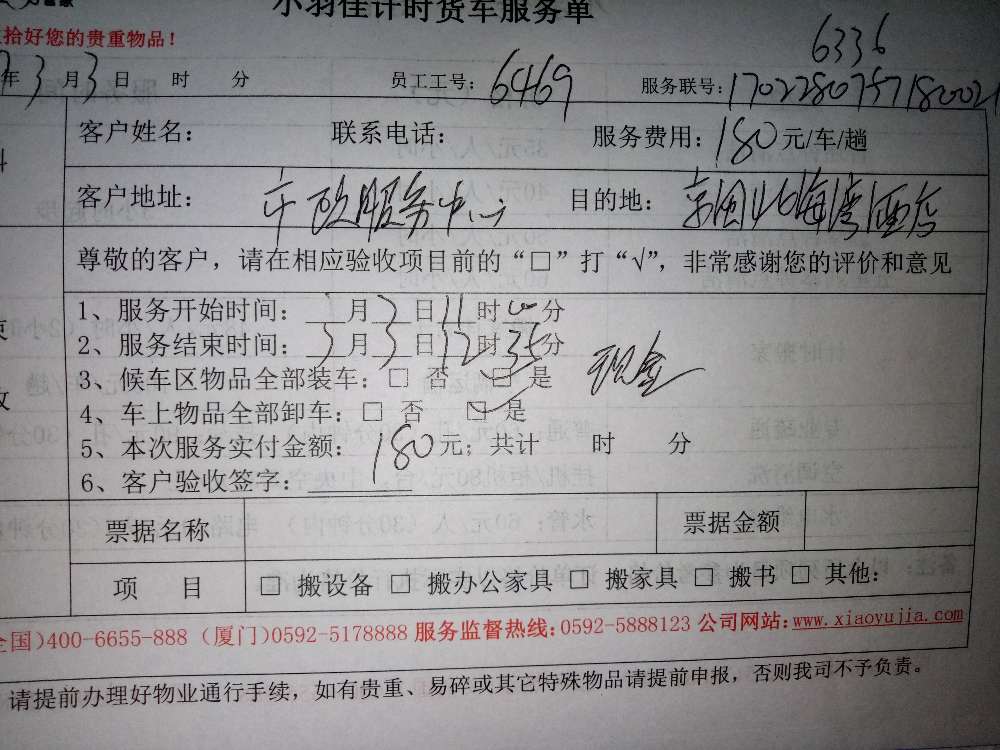 小羽佳计时货车服务单
拾好您的贵重物品!
6336
年3月3日 时 分 员工工号: 6469 服务联号: 
客户姓名: 联系电话: 服务费用: 180元/车/趟
客户地址: 市政服务中心 目的地: 京闽北海湾酒店
尊敬的客户，请在相应验收项目前的“□”打“√”，非常感谢您的评价和意见
1、服务开始时间: 3月3日11时00分
2、服务结束时间: 3月3日12时35分
现金
3、候车区物品全部装车: □ 否 □ 是
4、车上物品全部卸车: □ 否 ☑ 是
5、本次服务实付金额: 180元; 共计 时 分
6、客户验收签字:
票据名称 票据金额
项 目 □ 搬设备 □ 搬办公家具 □ 搬家具 □ 搬书 □ 其他:
全国)400-6655-888 (厦门)0592-5178888 服务监督热线:0592-5888123 公司网站:www.xiaoyujia.com
请提前办理好物业通行手续，如有贵重、易碎或其它特殊物品请提前申报，否则我司不予负责。